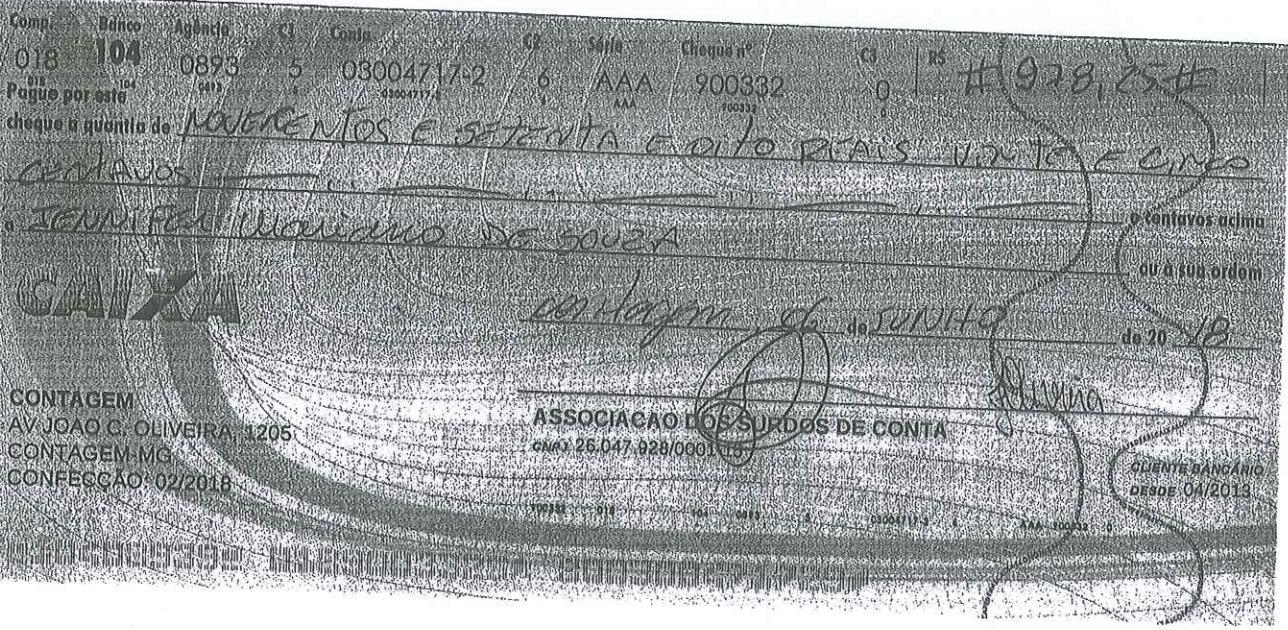 Comp. Banco Agência C1 Conta C2 Série Cheque nº C3 R$
018 104 0893 5 03004717-2 6 AAA 900332 0 #978,25#
018 104 0893 5 03004717-2 6 AAA 900332 0
Pague por este
cheque a quantia de NOVECENTOS E SETENTA E OITO REAIS VINTE E CINCO
CENTAVOS e centavos acima
a JENNIFER Mariano DE SOUZA ou à sua ordem
CAIXA
contagem, 06 de JUNHO de 20 18
CONTAGEM
AV JOAO C. OLIVEIRA, 1205
CONTAGEM-MG
CONFECÇÃO: 02/2018
ASSOCIACAO DOS SURDOS DE CONTA
CNPJ 26.047.928/0001
CLIENTE BANCÁRIO
DESDE 04/2013
900332 018 104 0893 5 03004717-2 6 AAA 900332 0